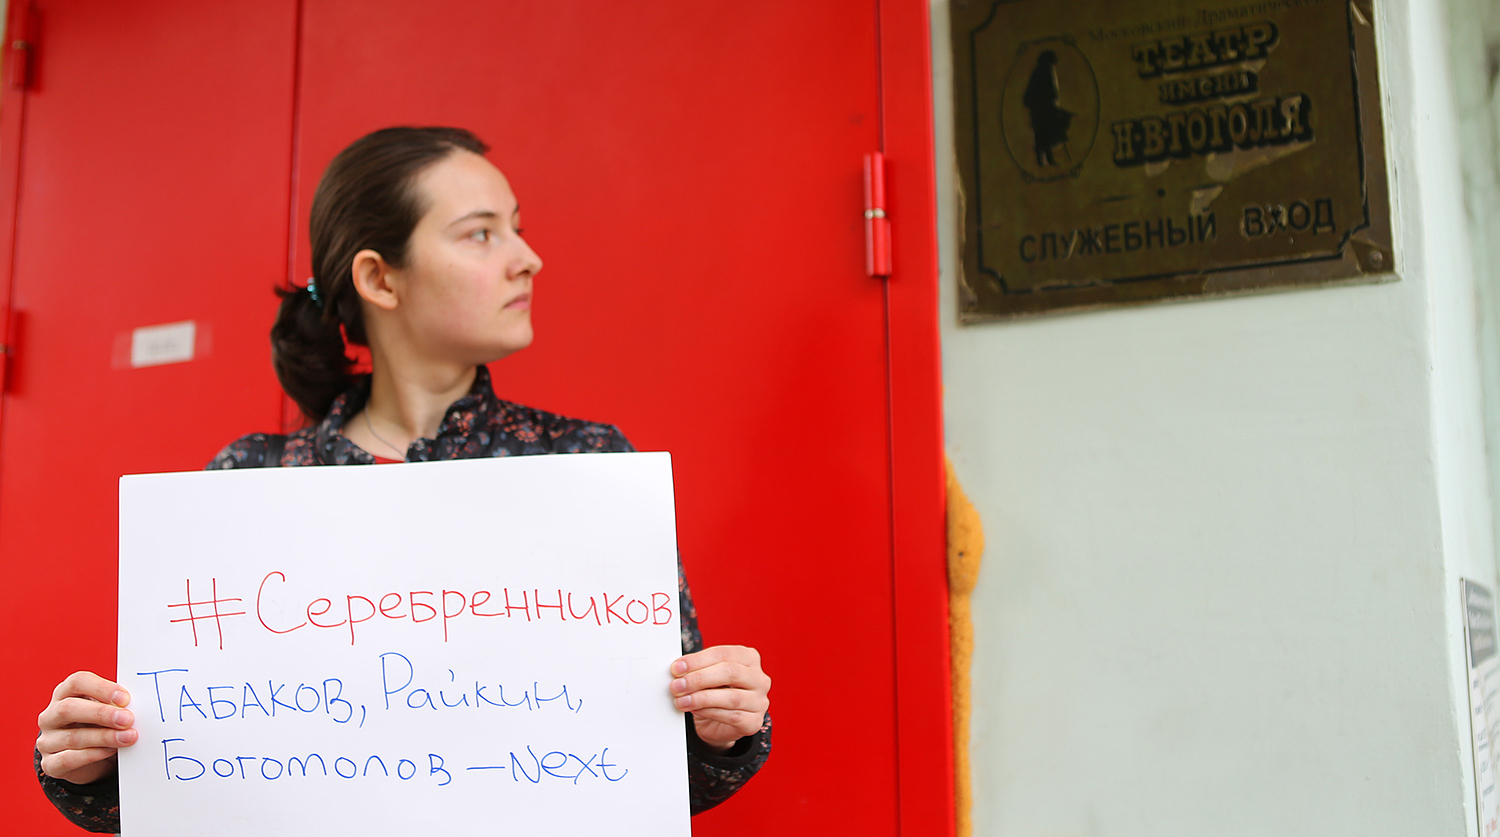 #Серебренников
ТАБАКОВ, Райкин,
Богомолов – Next
Московский Драматический
ТЕАТР
имени
Н·В·ГОГОЛЯ
СЛУЖЕБНЫЙ ВХОД